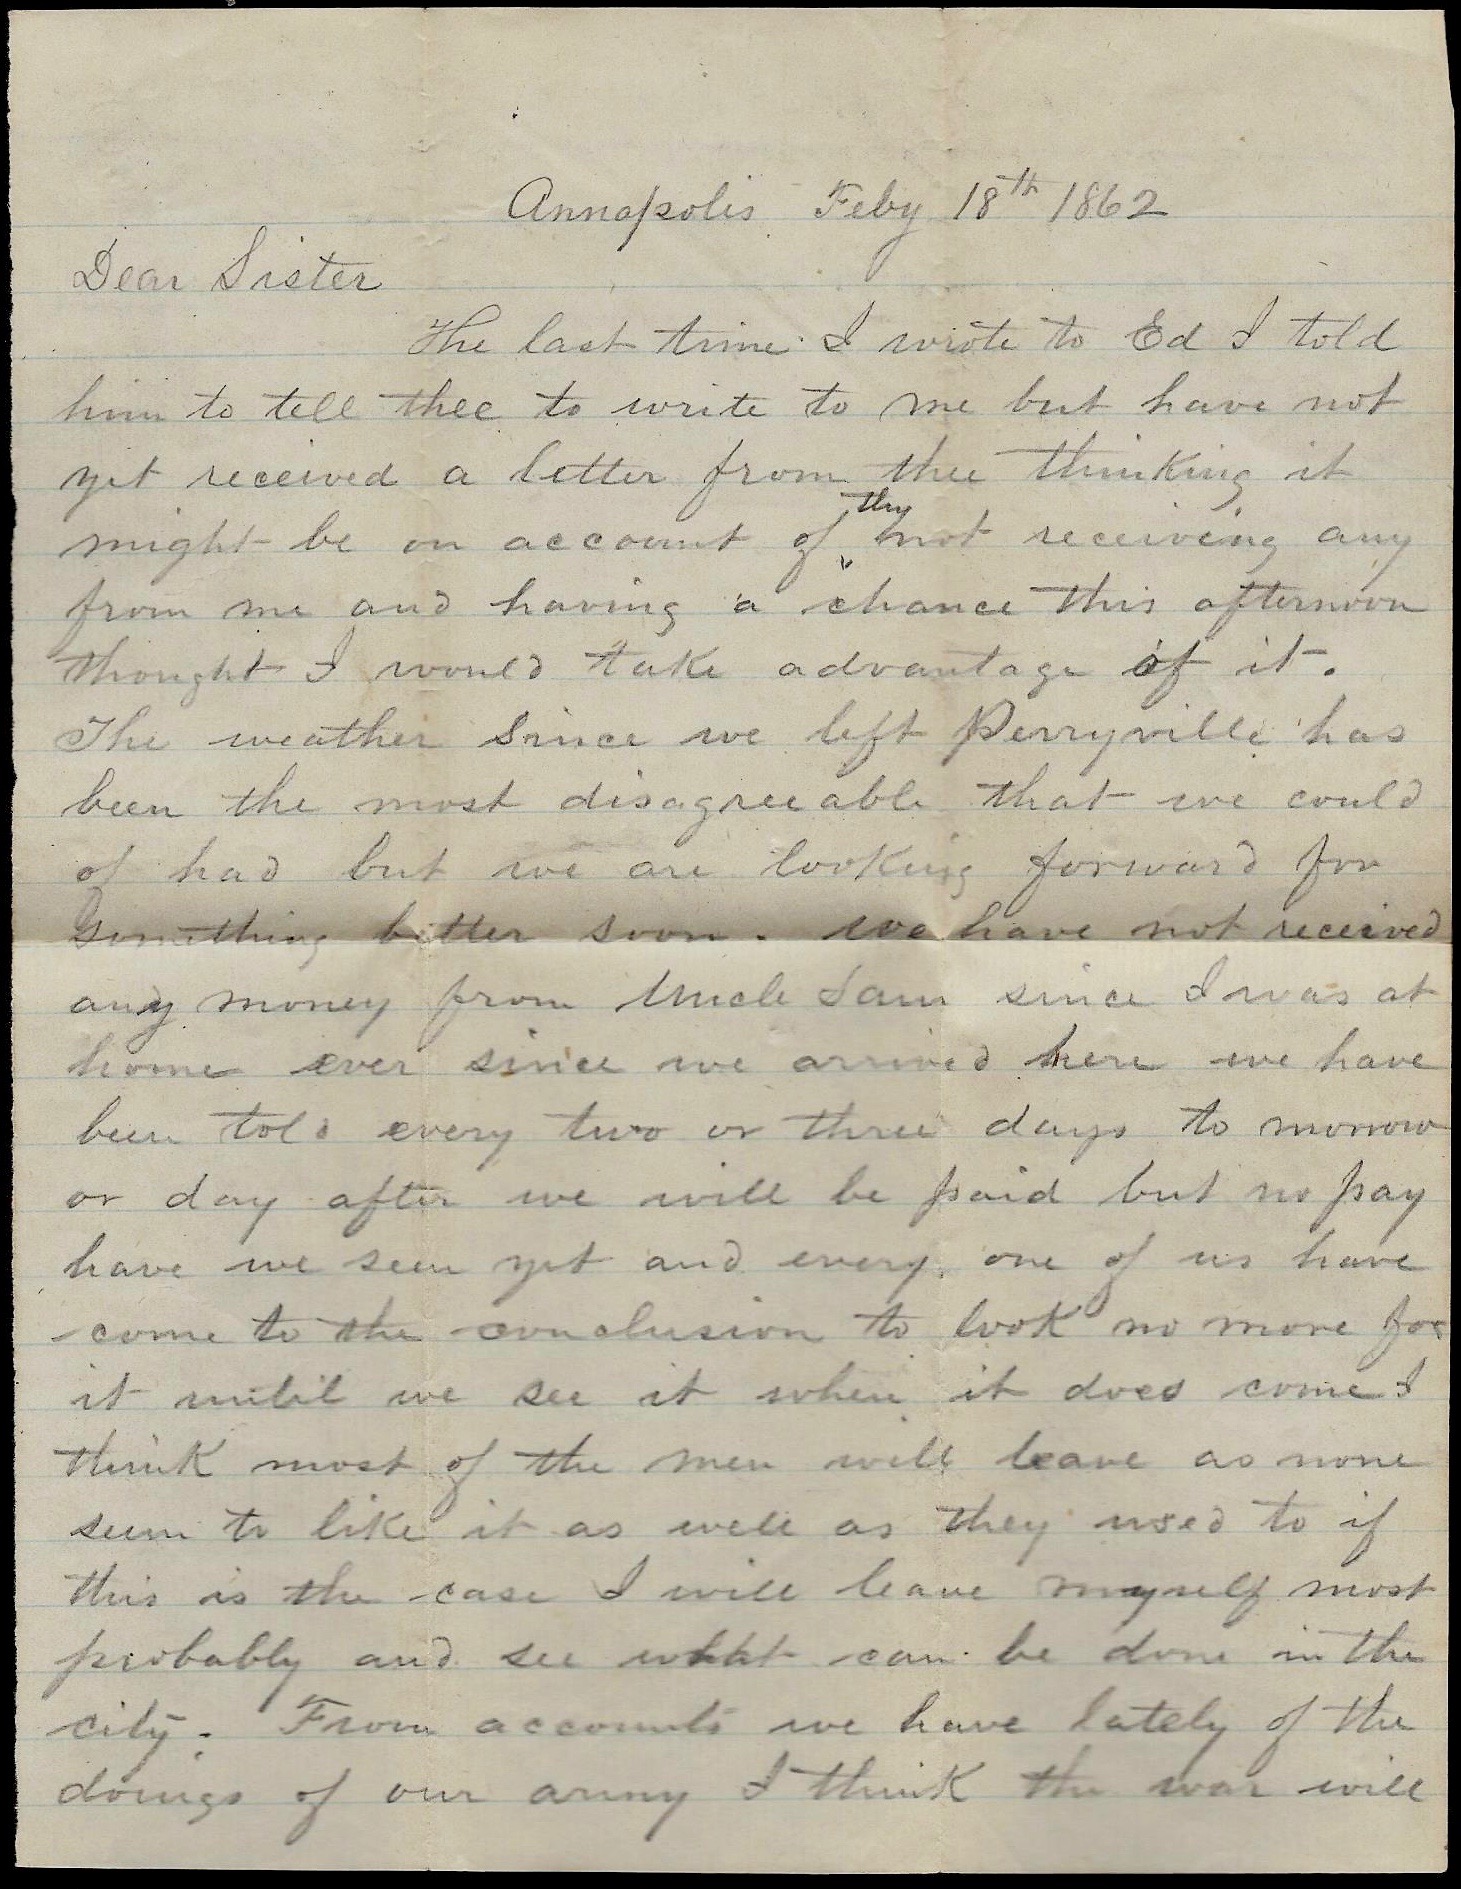 Annapolis Feby 18th 1862
Dear Sister
The last time I wrote to Ed I told
him to tell thee to write to me but have not
yet received a letter from thee thinking it
might be on account of thy not receiving any
from me and having a chance this afternoon
thought I would take advantage of it.
The weather since we left Perryville has
been the most disagreeable that we could
of had but we are looking forward for
something better soon. we have not received
any money from Uncle Sam since I was at
home ever since we arrived here we have
been told every two or three days to morrow
or day after we will be paid but no pay
have we seen yet and every one of us have
come to the conclusion to look no more for
it until we see it when it does come I
think most of the men will leave as none
seem to like it as well as they used to if
this is the case I will leave myself most
probably and see what can be done in the
city. From accounts we have lately of the
doings of our army I think the war will